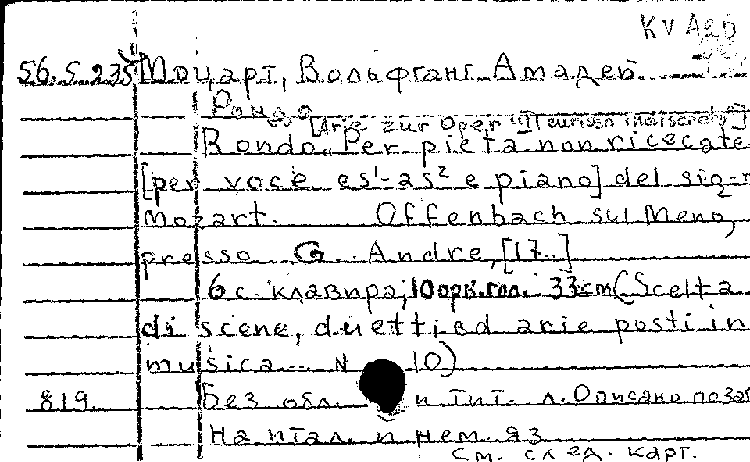 KV 420
56.5.235 Моцарт, Вольфганг Амадей
Рондо
[Arie zur Oper
Rondo. Per pieta non ricecate
[per voce es¹-as² e piano] del sig-r
Mozart. Offenbach sul Meno,
presso G. Andre, [17..]
6 с клавира, 10 орк. гол. 33 cm (Scelta
di scene, duetti ed arie posti in
musica... N 10)
819. Без обл. и тит. л. Описано по заг
На итал. и нем. яз
См. след. карт.